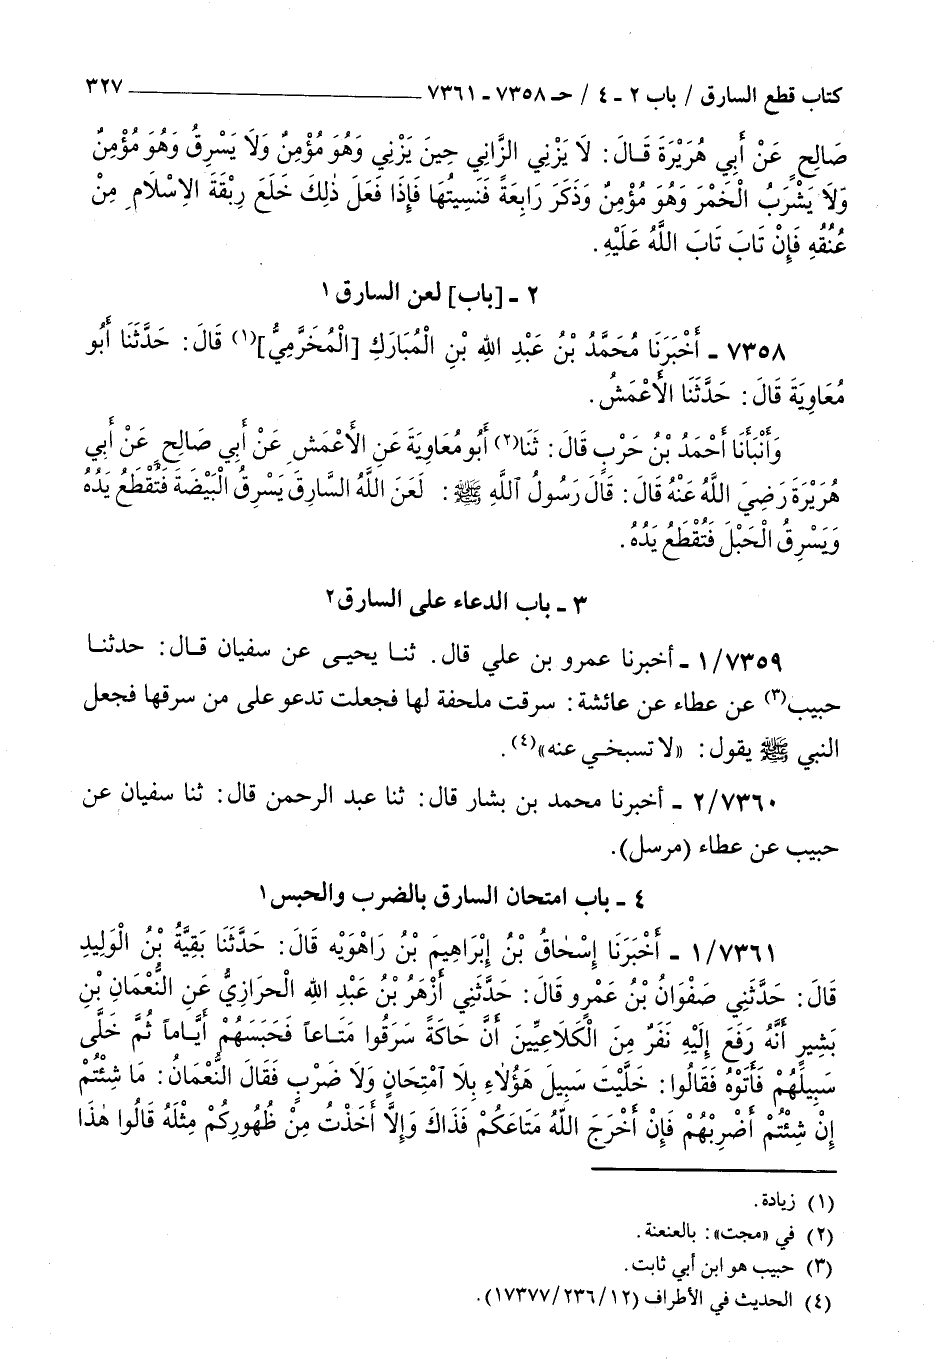 كتاب قطع السارق / باب ٢ - ٤ / حـ ٧٣٥٨ - ٧٣٦١ ٣٢٧
صَالِحٍ عَنْ أَبِي هُرَيْرَةَ قَالَ: لَا يَزْنِي الزَّانِي حِينَ يَزْنِي وَهُوَ مُؤْمِنٌ وَلَا يَسْرِقُ وَهُوَ مُؤْمِنٌ
وَلَا يَشْرَبُ الْخَمْرَ وَهُوَ مُؤْمِنٌ وَذَكَرَ رَابِعَةً فَنَسِيتُهَا فَإِذَا فَعَلَ ذٰلِكَ خَلَعَ رِبْقَةَ الإِسْلَامِ مِنْ
عُنُقِهِ فَإِنْ تَابَ تَابَ اللَّهُ عَلَيْهِ.
٢ - [باب] لعن السارق ١
٧٣٥٨ - أَخْبَرَنَا مُحَمَّدُ بْنُ عَبْدِ اللهِ بْنِ الْمُبَارَكِ [الْمُخَرَّمِيُّ](١) قَالَ: حَدَّثَنَا أَبُو
مُعَاوِيَةَ قَالَ: حَدَّثَنَا الأَعْمَشُ.
وَأَنْبَأَنَا أَحْمَدُ بْنُ حَرْبٍ قَالَ: ثَنَا(٢) أَبُو مُعَاوِيَةَ عَنِ الأَعْمَشِ عَنْ أَبِي صَالِحٍ عَنْ أَبِي
هُرَيْرَةَ رَضِيَ اللَّهُ عَنْهُ قَالَ: قَالَ رَسُولُ اللَّهِ ﷺ: لَعَنَ اللَّهُ السَّارِقَ يَسْرِقُ الْبَيْضَةَ فَتُقْطَعُ يَدُهُ
وَيَسْرِقُ الْحَبْلَ فَتُقْطَعُ يَدُهُ.
٣ - باب الدعاء على السارق ٢
١/٧٣٥٩ - أخبرنا عمرو بن علي قال. ثنا يحيى عن سفيان قال: حدثنا
حبيب(٣) عن عطاء عن عائشة: سرقت ملحفة لها فجعلت تدعو على من سرقها فجعل
النبي ﷺ يقول: «لا تسبخي عنه»(٤).
٢/٧٣٦٠ - أخبرنا محمد بن بشار قال: ثنا عبد الرحمن قال: ثنا سفيان عن
حبيب عن عطاء (مرسل).
٤ - باب امتحان السارق بالضرب والحبس ١
١/٧٣٦١ - أَخْبَرَنَا إِسْحَاقُ بْنُ إِبْرَاهِيمَ بْنُ رَاهَوَيْه قَالَ: حَدَّثَنَا بَقِيَّةُ بْنُ الْوَلِيدِ
قَالَ: حَدَّثَنِي صَفْوَانُ بْنُ عَمْرٍو قَالَ: حَدَّثَنِي أَزْهَرُ بْنُ عَبْدِ اللهِ الْحَرَازِيُّ عَنِ النُّعْمَانِ بْنِ
بَشِيرٍ أَنَّهُ رَفَعَ إِلَيْهِ نَفَرٌ مِنَ الْكَلَاعِيِّينَ أَنَّ حَاكَةً سَرَقُوا مَتَاعاً فَحَبَسَهُمْ أَيَّاماً ثُمَّ خَلَّى
سَبِيلَهُمْ فَأَتَوْهُ فَقَالُوا: خَلَّيْتَ سَبِيلَ هَؤُلَاءِ بِلَا امْتِحَانٍ وَلَا ضَرْبٍ فَقَالَ النُّعْمَانُ: مَا شِئْتُمْ
إِنْ شِئْتُمْ أَضْرِبْهُمْ فَإِنْ أَخْرَجَ اللَّهُ مَتَاعَكُمْ فَذَاكَ وَإِلَّا أَخَذْتُ مِنْ ظُهُورِكُمْ مِثْلَهُ قَالُوا هٰذَا
(١) زيادة.
(٢) في «مجت»: بالعنعنة.
(٣) حبيب هو ابن أبي ثابت.
(٤) الحديث في الأطراف (١٢/ ٢٣٦/ ١٧٣٧٧).